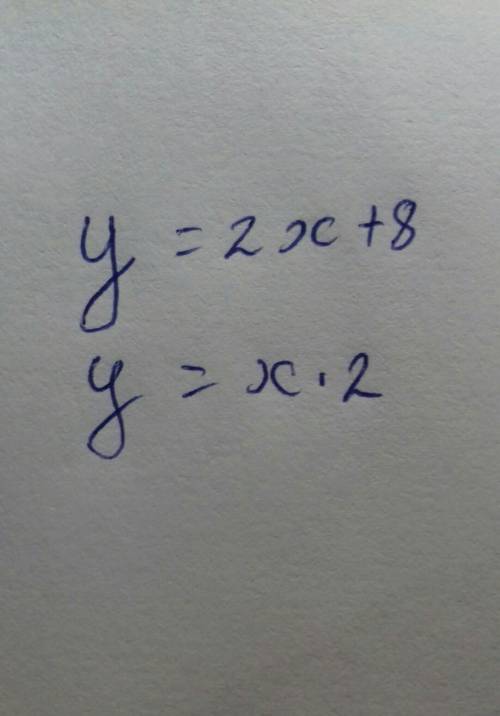 y = 2x + 8
y = x · 2